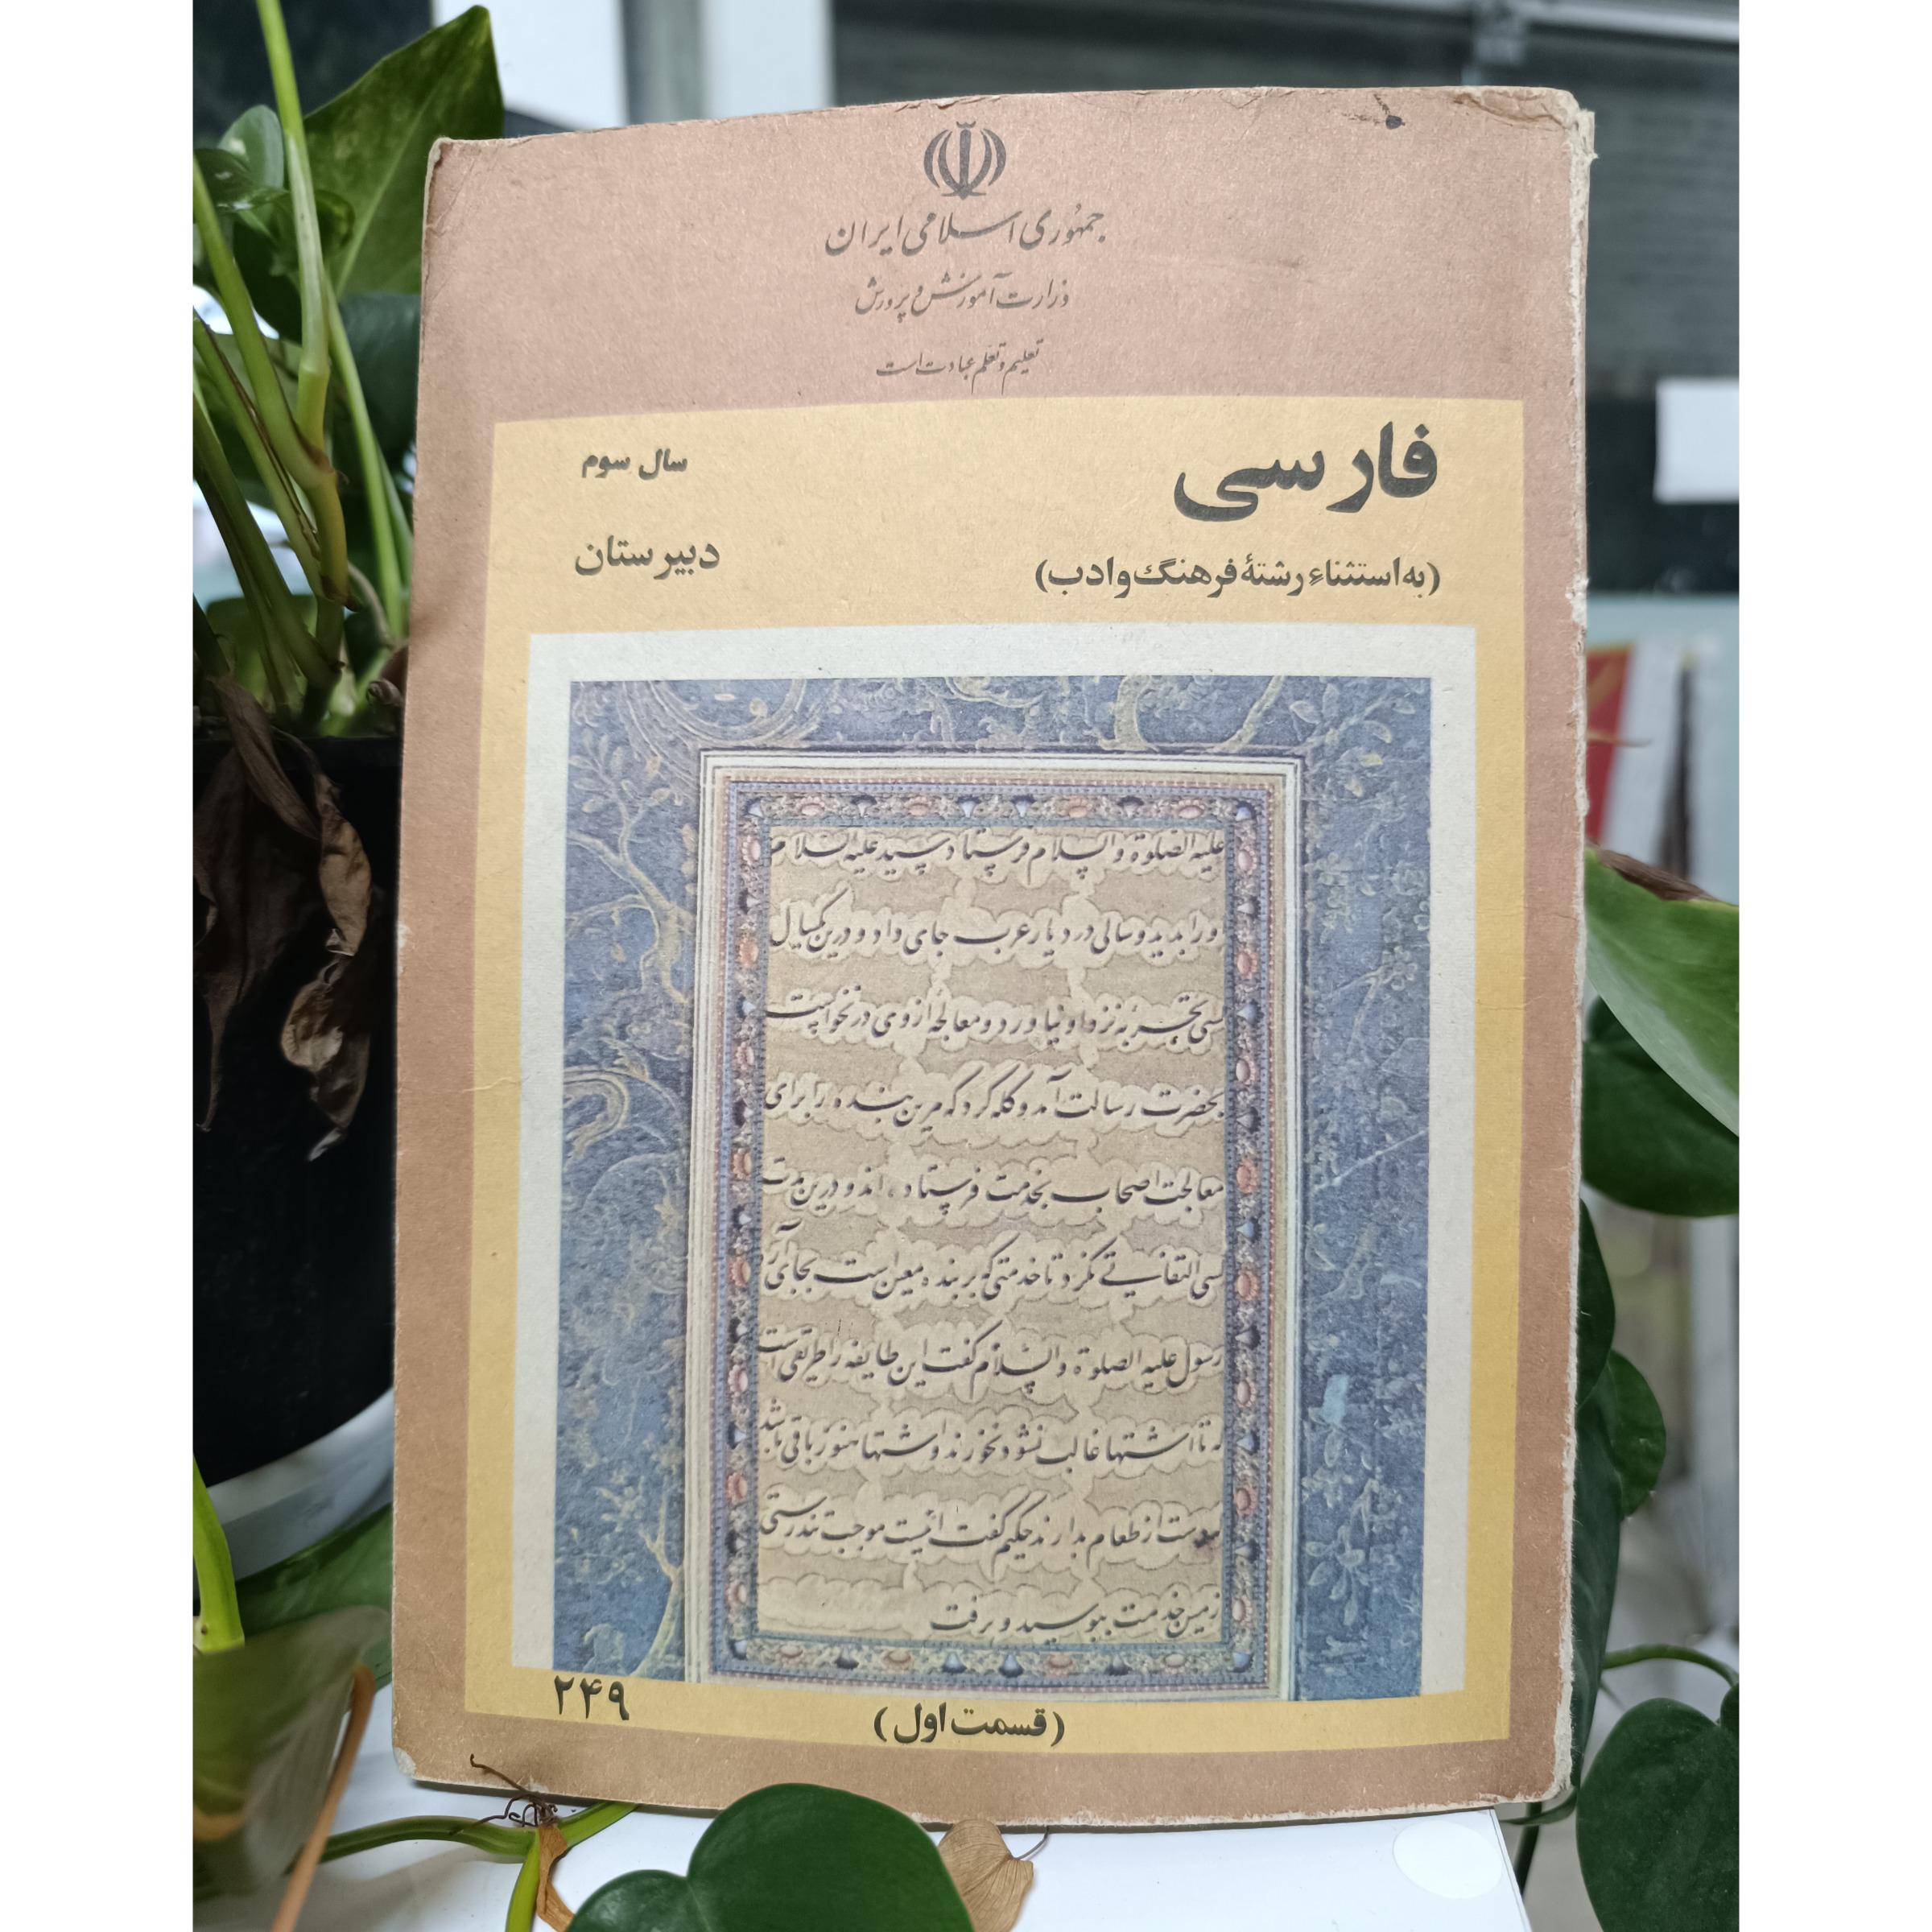 جمهوری اسلامی ایران
وزارت آموزش و پرورش
تعلیم و تعلم عبادت است
فارسی
سال سوم
(به استثناءِ رشتهٔ فرهنگ و ادب)
دبیرستان
علیه الصلوة والسلام فرستاد چو سید علیه السلام
او را بدید و سالی در دیار عرب جای داد و درین یکسال
کسی تجربه نزد او نیاورد و معالجه از وی در نخواست
بحضرت رسالت آمد و گله کرد که مرین بنده را برای
معالجت اصحاب بخدمت فرستاده اند و درین مدت
کسی التفاتی نکرد تا خدمتی که بر بنده معین است بجای آرد
رسول علیه الصلوة والسلام گفت این طایفه را طریقی است
که تا اشتها غالب نشود نخورند و اشتها هنوز باقی باشد
که دست از طعام بدارند حکیم گفت اینست موجب تندرستی
زمین خدمت ببوسید و برفت
۲۴۹
(قسمت اول)